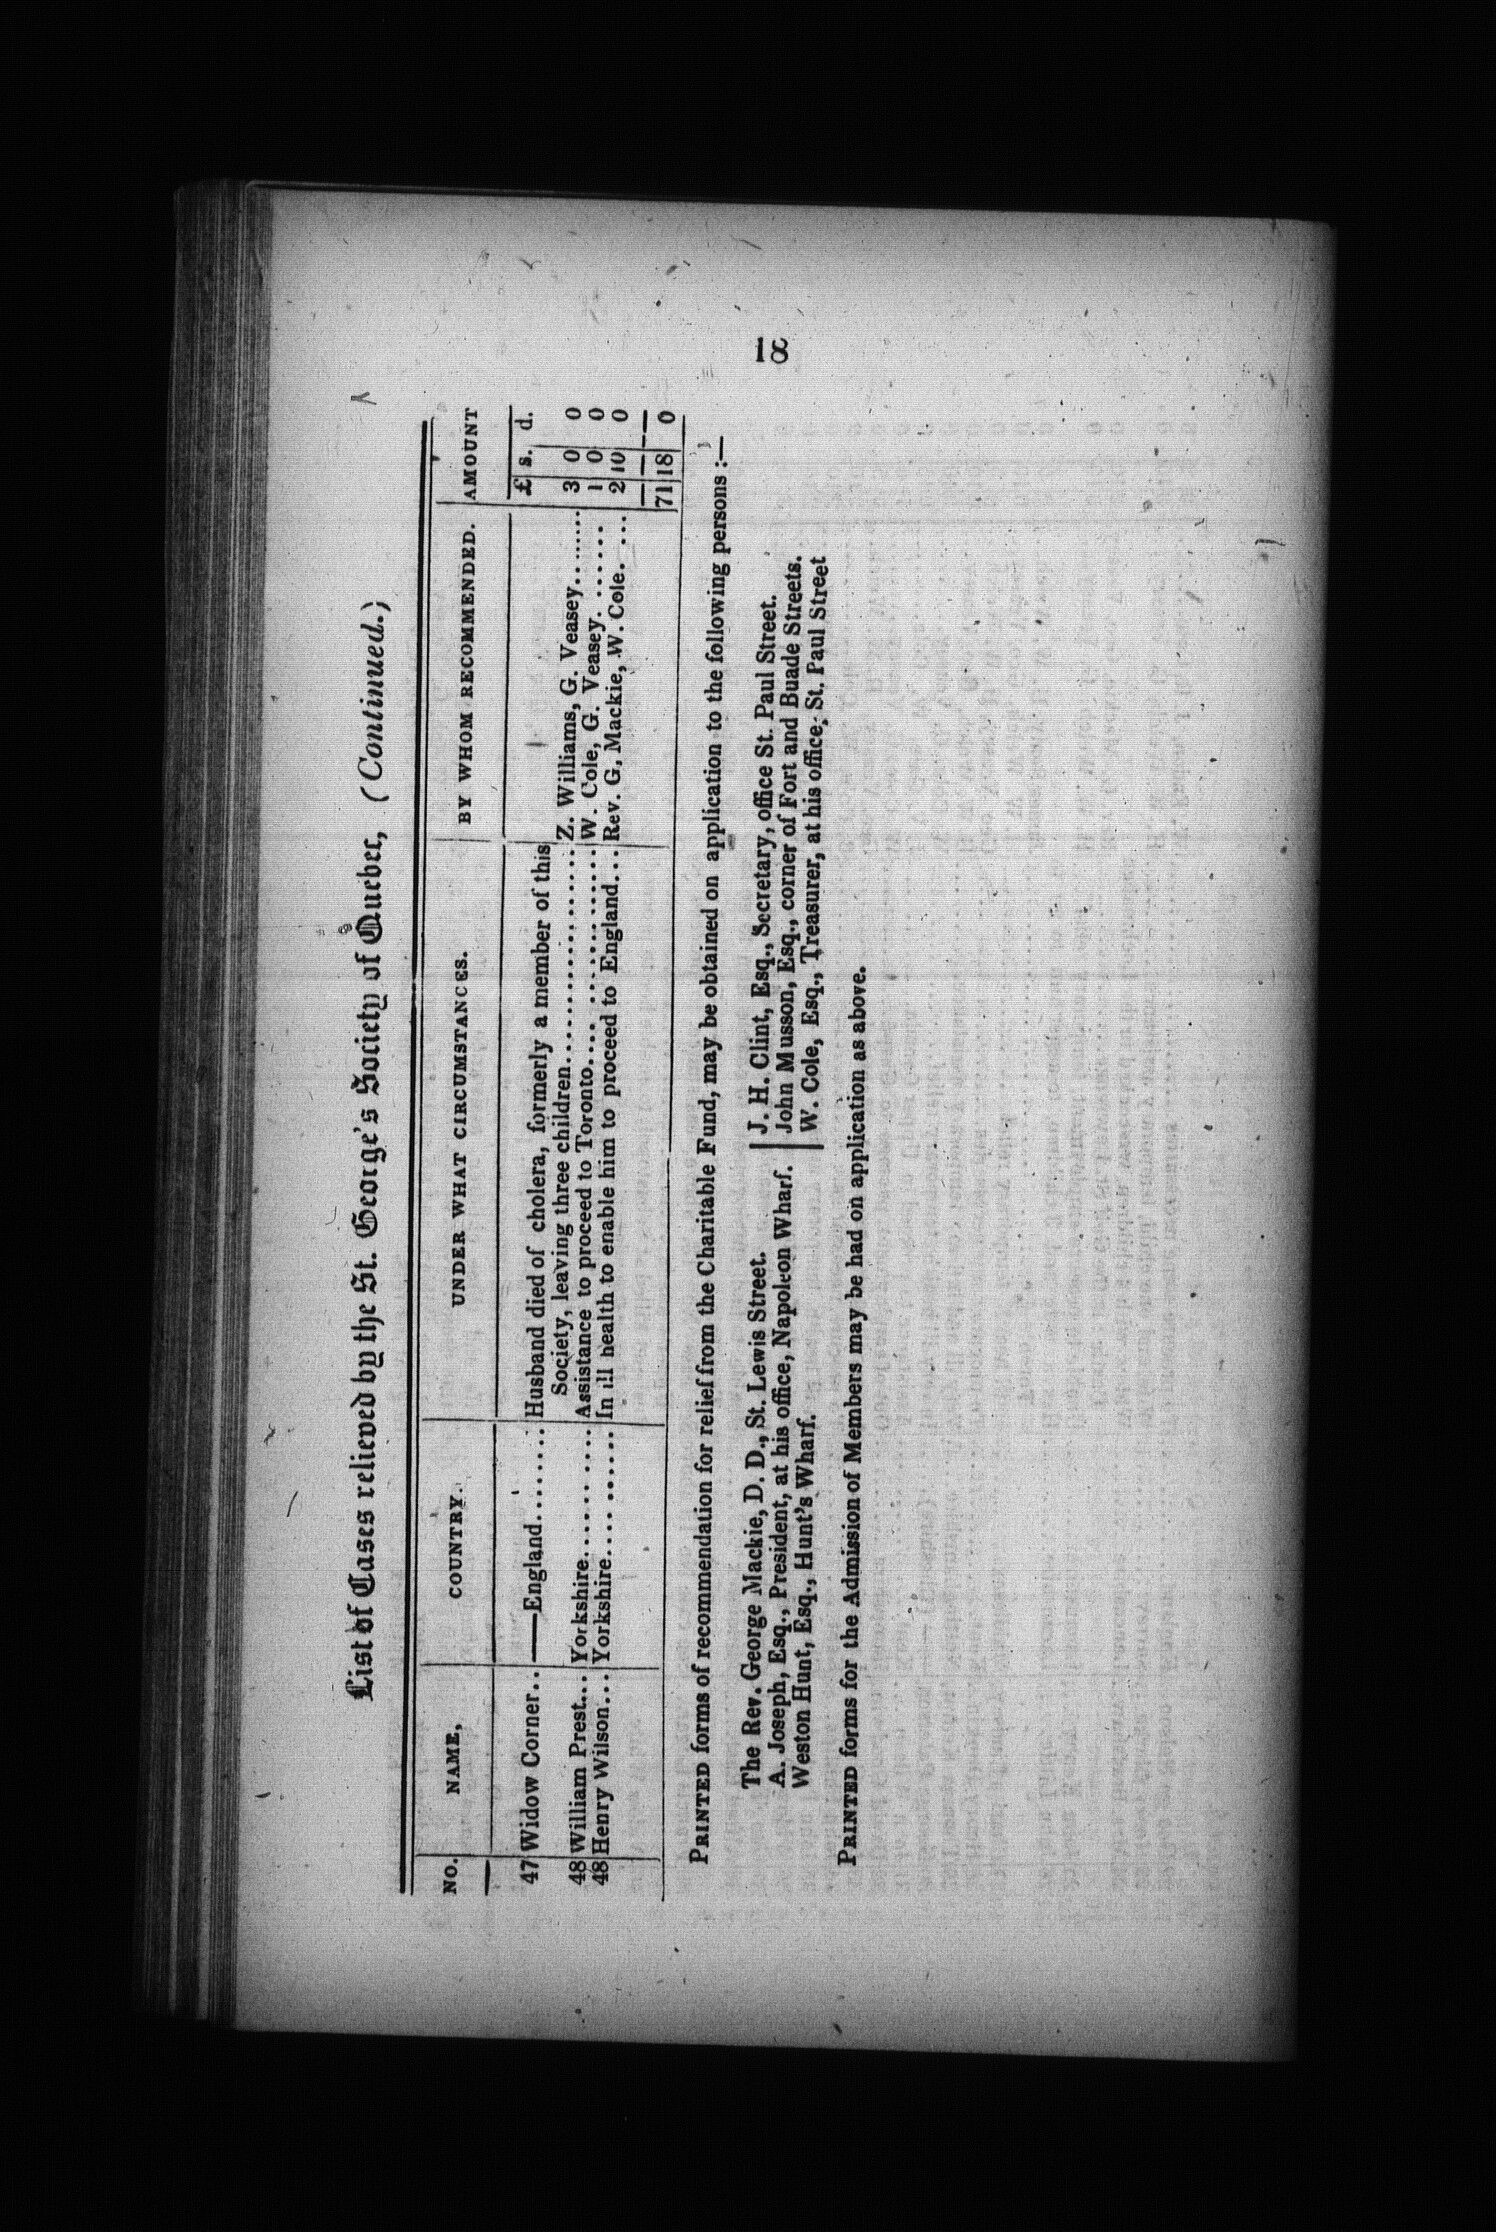 List of Cases relieved by the St. George's Society of Quebec, (Continued.)
NO. NAME, COUNTRY. UNDER WHAT CIRCUMSTANCES. BY WHOM RECOMMENDED. AMOUNT
£ s. d.
47 Widow Corner.. ——England........ Husband died of cholera, formerly a member of this
Society, leaving three children...................... Z. Williams, G. Veasey....... 3 0 0
48 William Prest... Yorkshire............ Assistance to proceed to Toronto.................... W. Cole, G. Veasey. ...... 1 0 0
48 Henry Wilson... Yorkshire.... ...... In ill health to enable him to proceed to England... Rev. G, Mackie, W. Cole. ... 2 10 0
71 18 0
18
PRINTED forms of recommendation for relief from the Charitable Fund, may be obtained on application to the following persons :—
The Rev. George Mackie, D. D., St. Lewis Street.
A. Joseph, Esq., President, at his office, Napoleon Wharf.
Weston Hunt, Esq., Hunt's Wharf.
J. H. Clint, Esq., Secretary, office St. Paul Street.
John Musson, Esq., corner of Fort and Buade Streets.
W. Cole, Esq., Treasurer, at his office, St. Paul Street
PRINTED forms for the Admission of Members may be had on application as above.